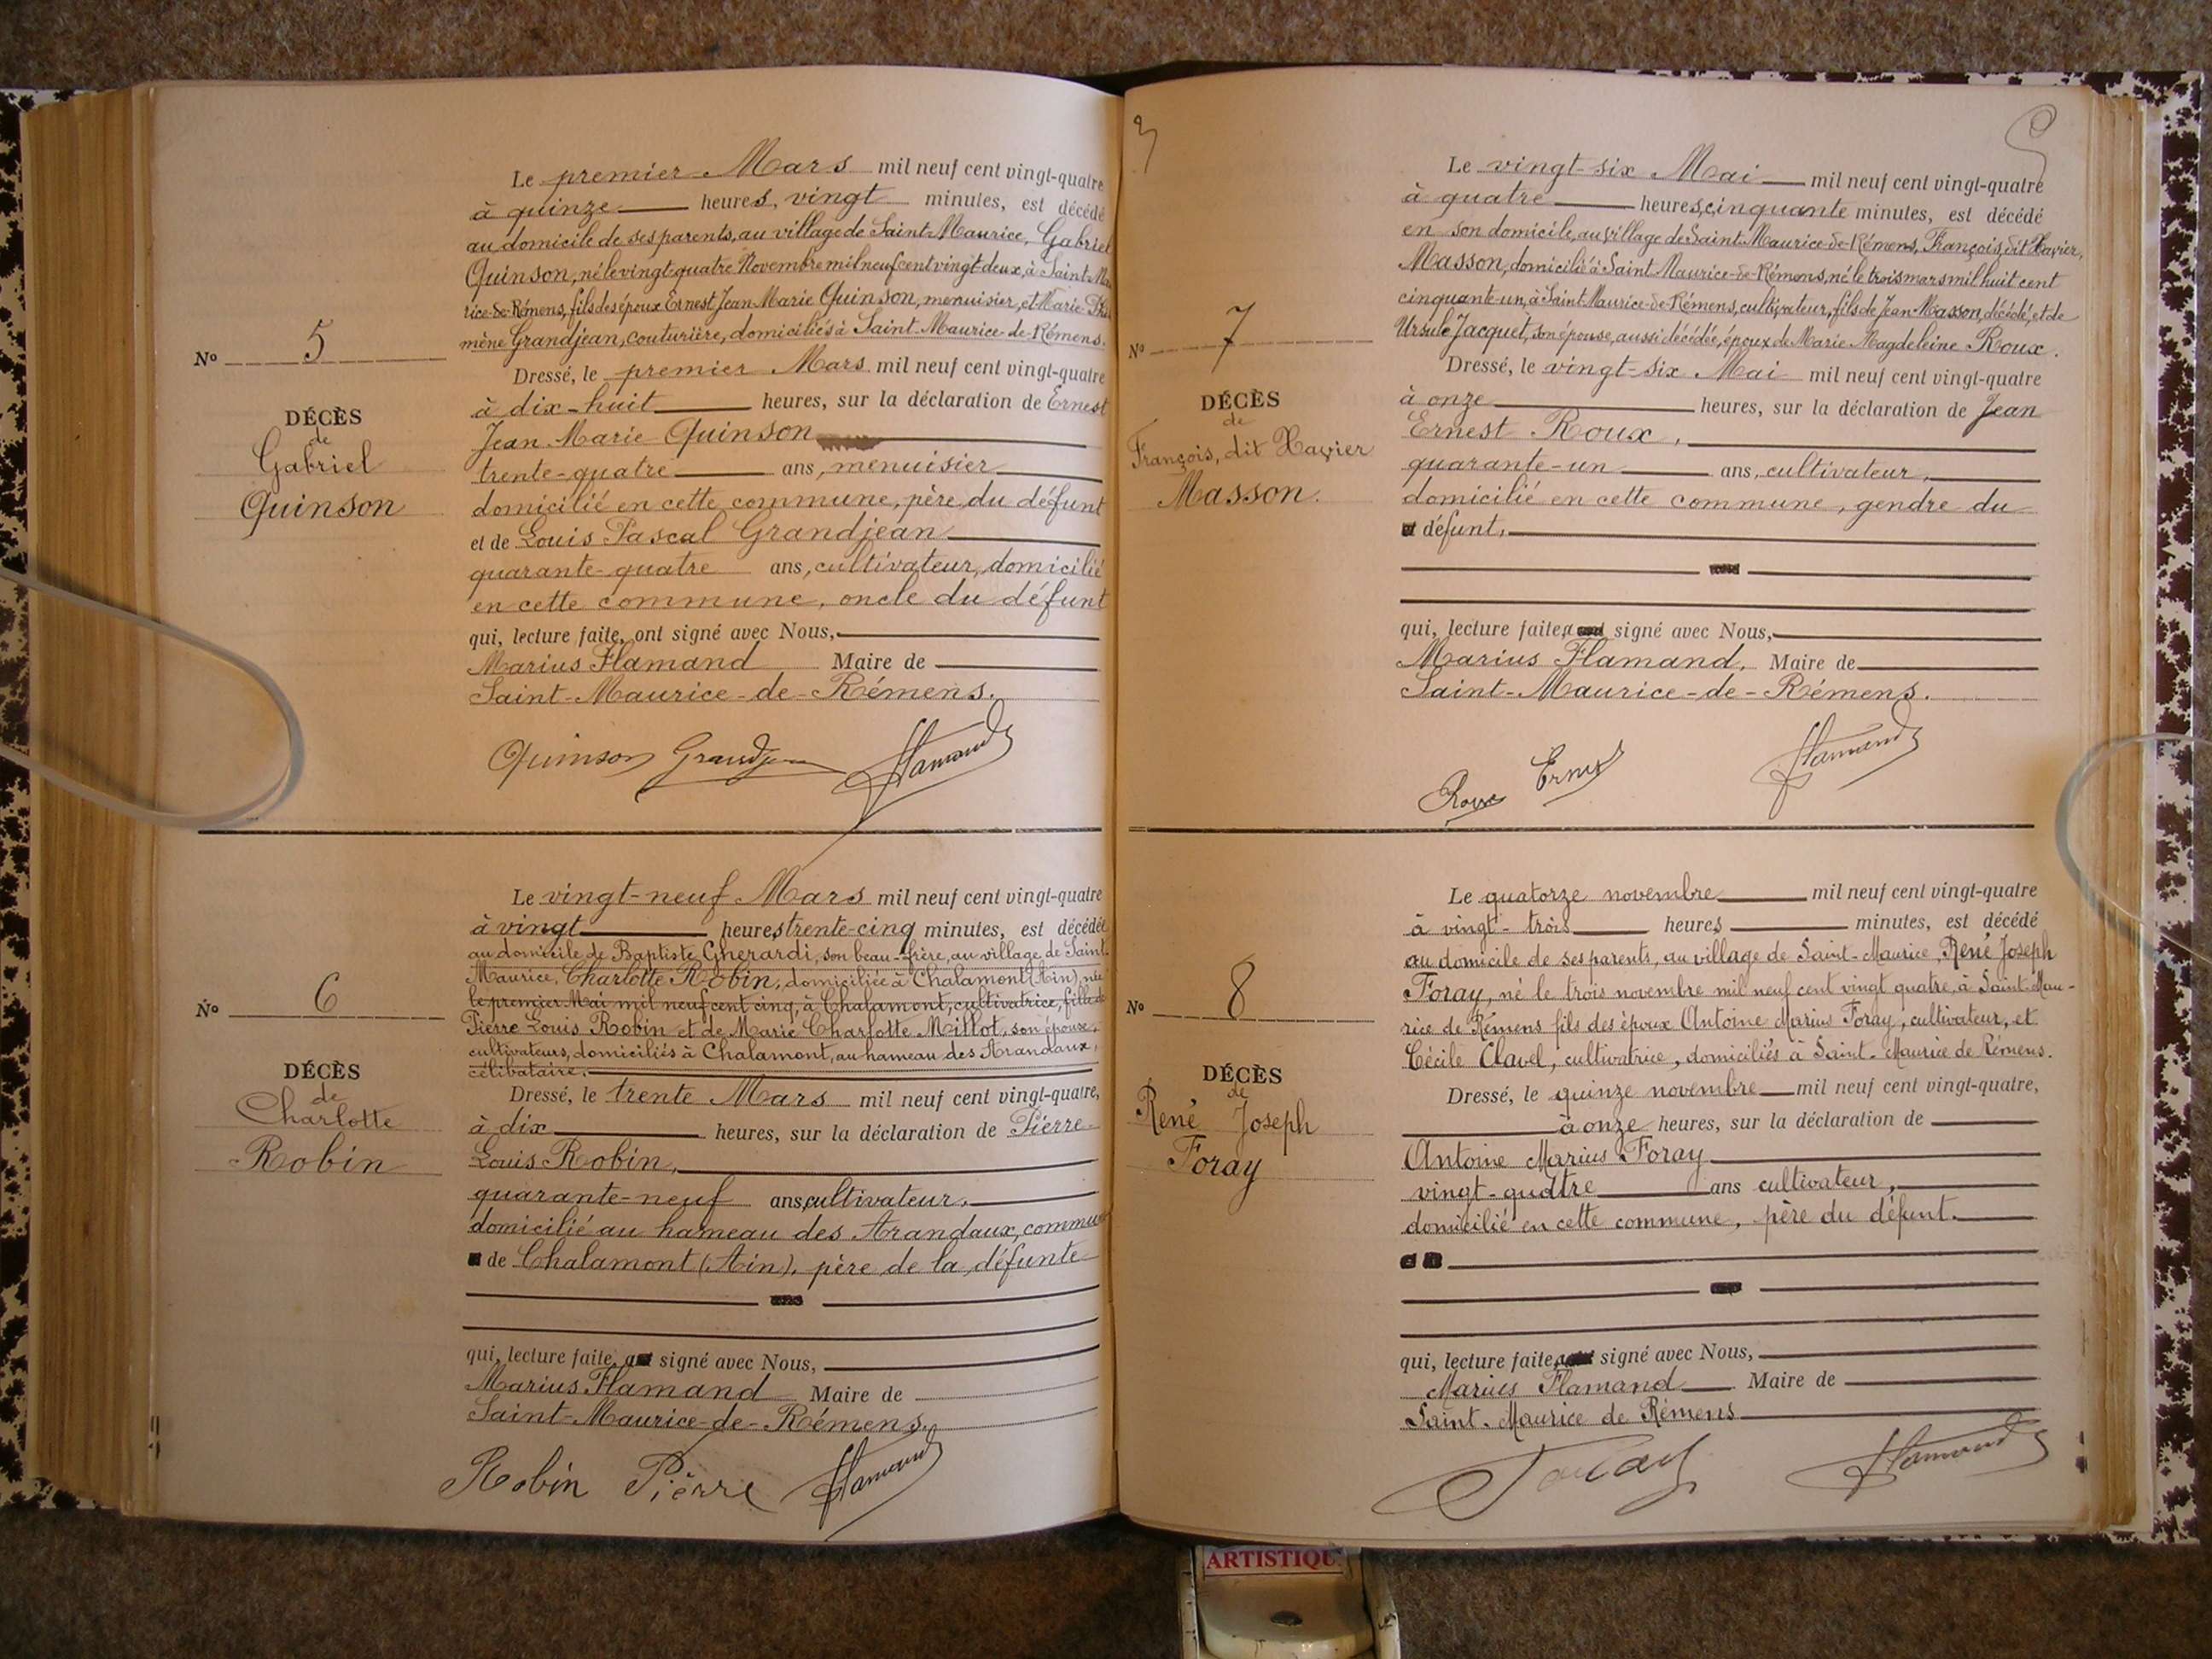 Le premier Mars mil neuf cent vingt-quatre
à quinze heures, vingt minutes, est décédé
au domicile de ses parents, au village de Saint-Maurice, Gabriel
Quinson, né le vingt quatre Novembre mil neuf cent vingt-deux, à Saint-Mau
rice-de-Rémens, fils des époux Ernest Jean Marie Quinson, menuisier, et Marie
mène Grandjean, couturière, domiciliés à Saint-Maurice-de-Rémens.
Nº 5
Dressé, le premier Mars mil neuf cent vingt-quatre
à dix-huit heures, sur la déclaration de Ernest
DÉCÈS
de
Gabriel
Quinson
Jean Marie Quinson
trente-quatre ans, menuisier
domicilié en cette commune, père du défunt
et de Louis Pascal Grandjean
quarante-quatre ans, cultivateur, domicilié
en cette commune, oncle du défunt
qui, lecture faite, ont signé avec Nous,
Marius Flamand Maire de
Saint-Maurice-de-Rémens.
Quinson Grandjean Flamand
Le vingt-neuf Mars mil neuf cent vingt-quatre
à vingt heures, trente-cinq minutes, est décédée
au domicile de Baptiste Gherardi, son beau-frère, au village de Saint-
Maurice, Charlotte Robin, domiciliée à Chalamont (Ain), née
le premier Mai mil neuf cent cinq, à Chalamont, cultivatrice, fille de
Pierre Louis Robin et de Marie Charlotte Millot, son épouse,
cultivateurs, domiciliés à Chalamont, au hameau des Arandaux,
célibataire.
Nº 6
DÉCÈS
de
Charlotte
Robin
Dressé, le trente Mars mil neuf cent vingt-quatre,
à dix heures, sur la déclaration de Pierre
Louis Robin,
quarante-neuf ans, cultivateur,
domicilié au hameau des Arandaux, commune
de Chalamont (Ain), père de la défunte
qui, lecture faite, a signé avec Nous,
Marius Flamand Maire de
Saint-Maurice-de-Rémens.
Robin Pierre Flamand
3
Le vingt-six Mai mil neuf cent vingt-quatre
à quatre heures, cinquante minutes, est décédé
en son domicile, au village de Saint-Maurice-de-Rémens, François, dit Xavier,
Masson, domicilié à Saint Maurice-de-Rémens, né le trois mars mil huit cent
cinquante-un, à Saint-Maurice-de-Rémens, cultivateur, fils de Jean Masson, décédé, et de
Ursule Jacquet, son épouse, aussi décédée, époux de Marie Magdeleine Roux.
Nº 7
DÉCÈS
de
François, dit Xavier
Masson.
Dressé, le vingt-six Mai mil neuf cent vingt-quatre
à onze heures, sur la déclaration de Jean
Ernest Roux,
quarante-un ans, cultivateur,
domicilié en cette commune, gendre du
défunt,
qui, lecture faite, a signé avec Nous,
Marius Flamand, Maire de
Saint-Maurice-de-Rémens.
Roux Ernest Flamand
Le quatorze novembre mil neuf cent vingt-quatre
à vingt-trois heures minutes, est décédé
au domicile de ses parents, au village de Saint-Maurice, René Joseph
Foray, né le trois novembre mil neuf cent vingt quatre, à Saint-Mau-
rice de Rémens fils des époux Antoine Marius Foray, cultivateur, et
Cécile Clavel, cultivatrice, domiciliés à Saint-Maurice de Rémens.
Nº 8
DÉCÈS
de
René Joseph
Foray
Dressé, le quinze novembre mil neuf cent vingt-quatre,
à onze heures, sur la déclaration de
Antoine Marius Foray
vingt-quatre ans cultivateur,
domicilié en cette commune, père du défunt.
qui, lecture faite, a signé avec Nous,
Marius Flamand Maire de
Saint-Maurice de Rémens
Foray Flamand
ARTISTIQU